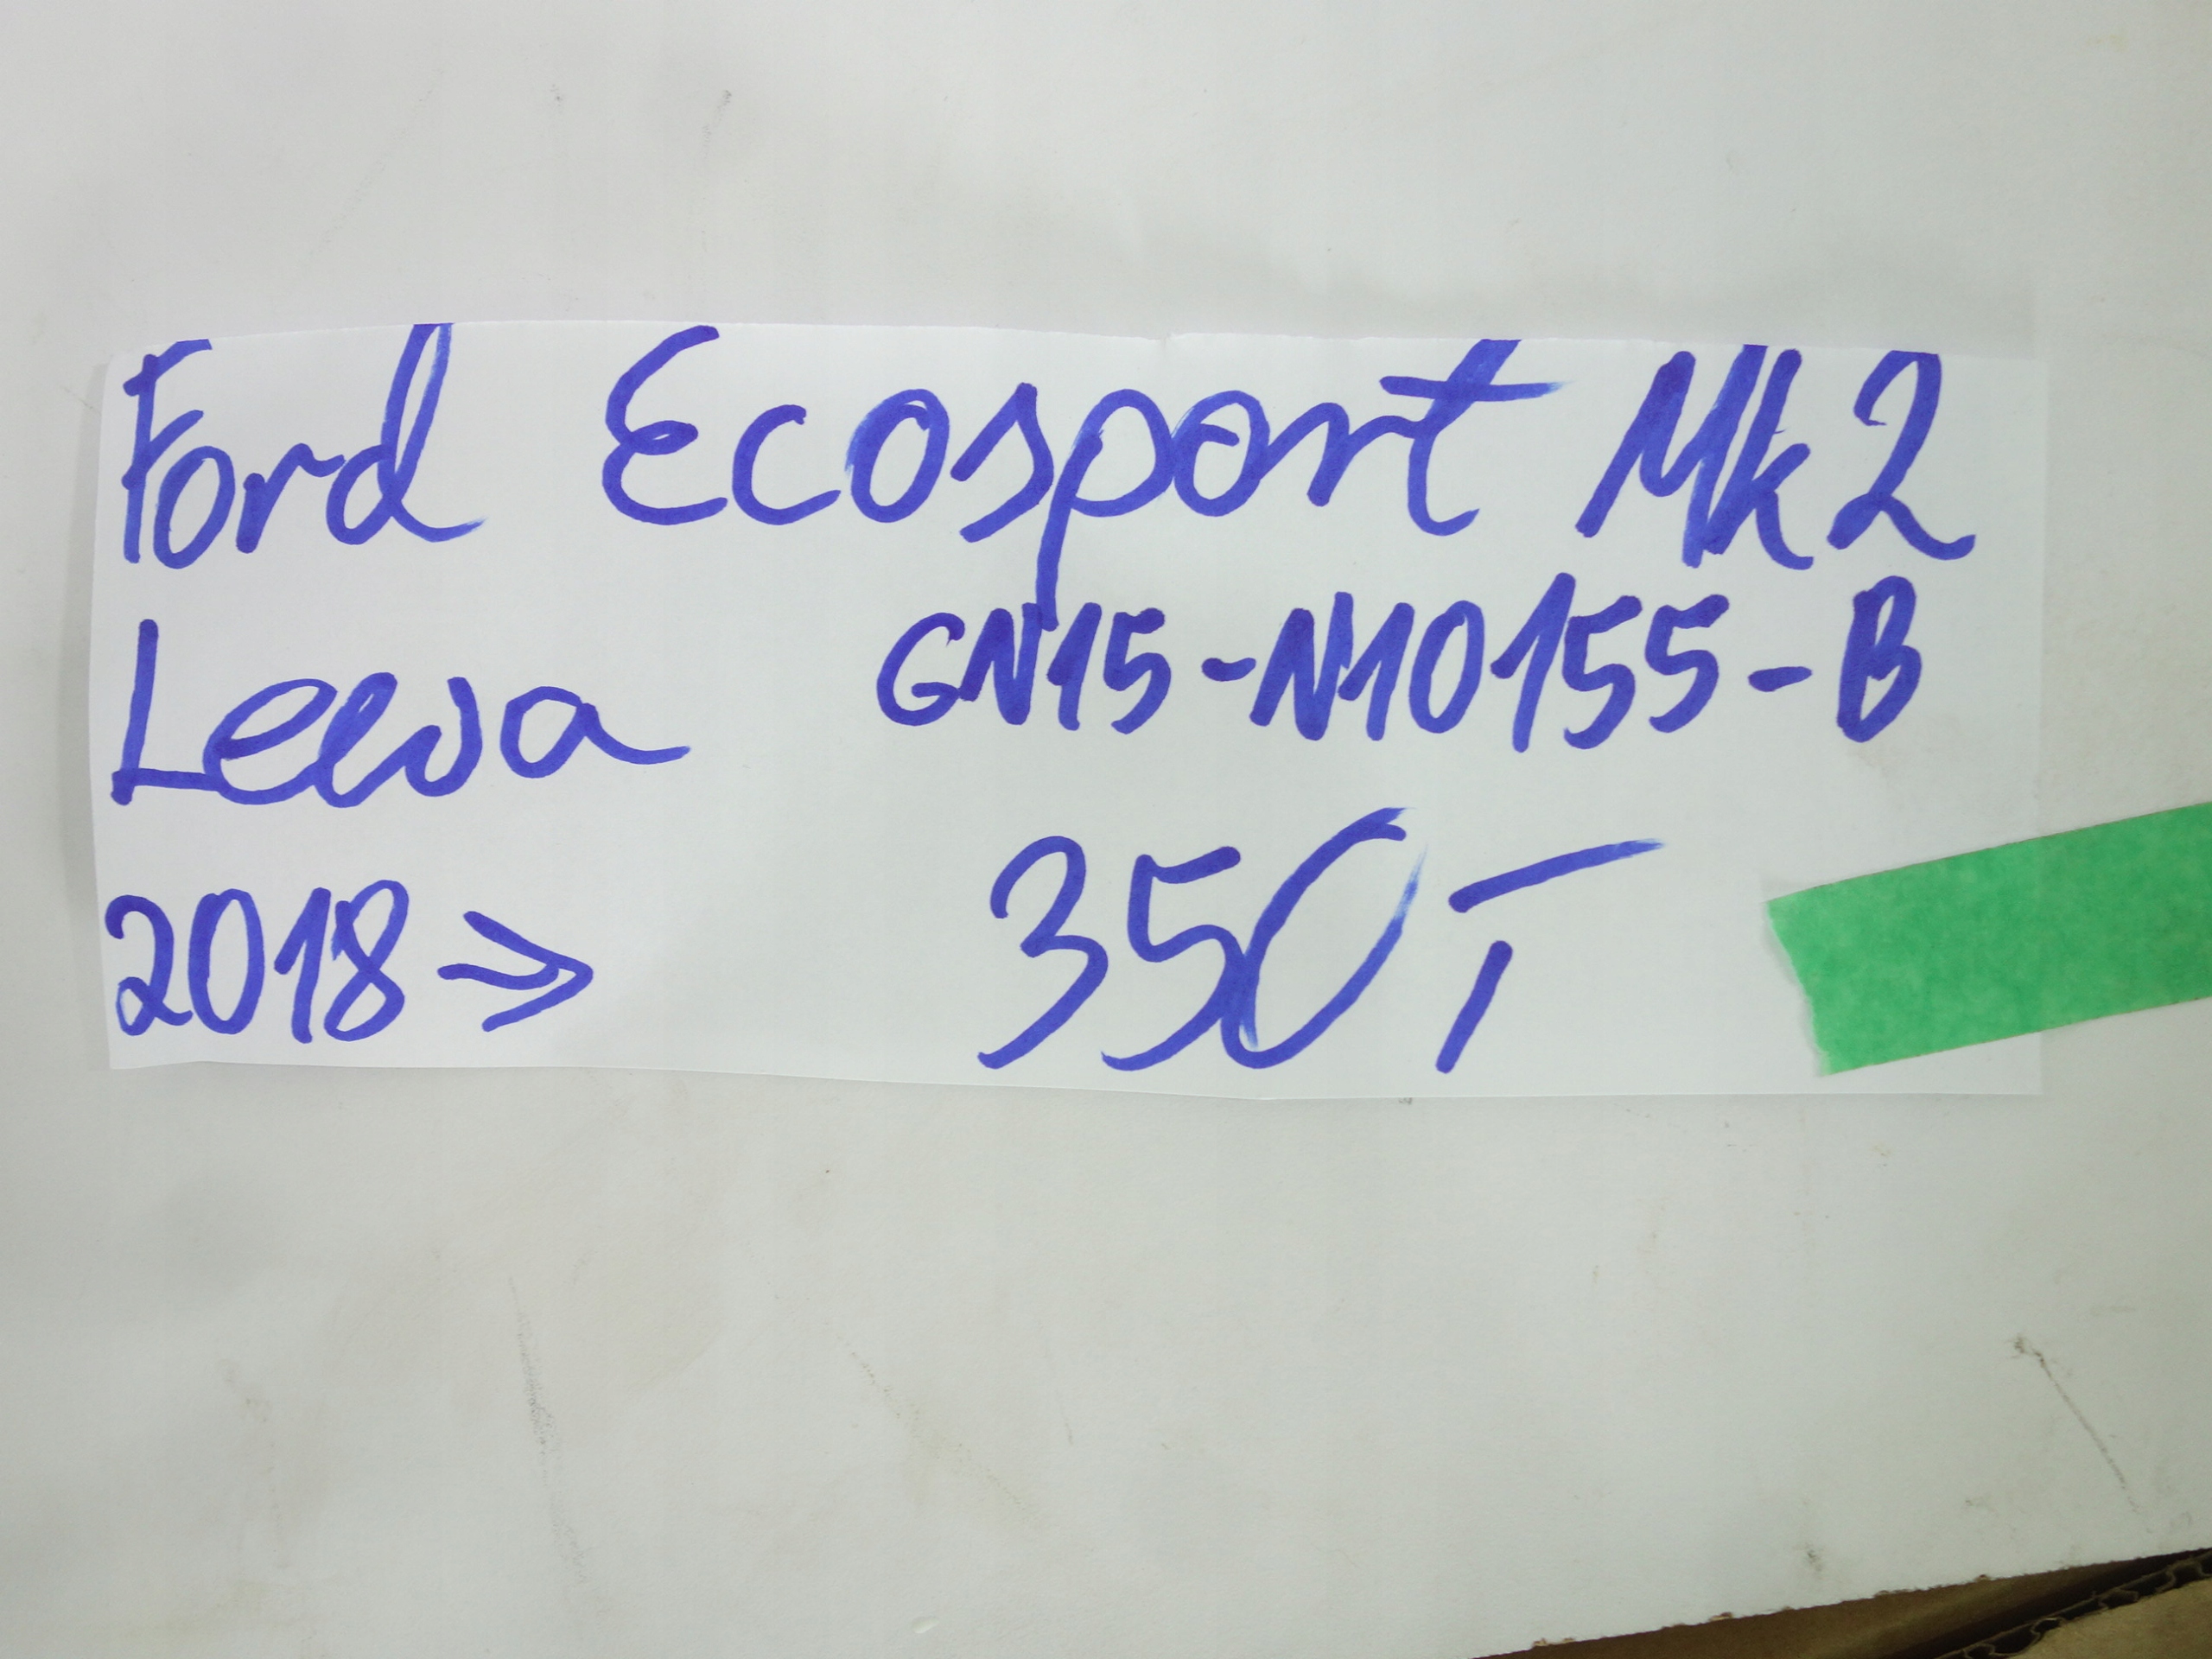 Ford Ecosport Mk2
Lewa GN15-N10155-B
2018 => 350T